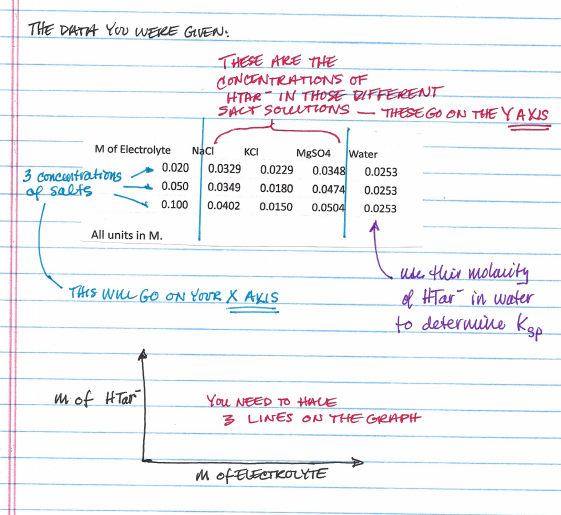 THE DATA YOU WERE GIVEN:
THESE ARE THE
CONCENTRATIONS OF
HTAR⁻ IN THOSE DIFFERENT
SALT SOLUTIONS — THESE GO ON THE Y AXIS
M of Electrolyte NaCl KCl MgSO4 Water
0.020 0.0329 0.0229 0.0348 0.0253
0.050 0.0349 0.0180 0.0474 0.0253
0.100 0.0402 0.0150 0.0504 0.0253
All units in M.
3 concentrations
of salts
THIS WILL GO ON YOUR X AXIS
use this molarity
of HTar⁻ in water
to determine Ksp
M of HTar⁻
YOU NEED TO HAVE
3 LINES ON THE GRAPH
M of ELECTROLYTE